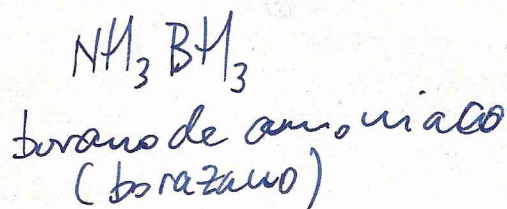 NH₃BH₃
borano de amoniaco
(borazano)